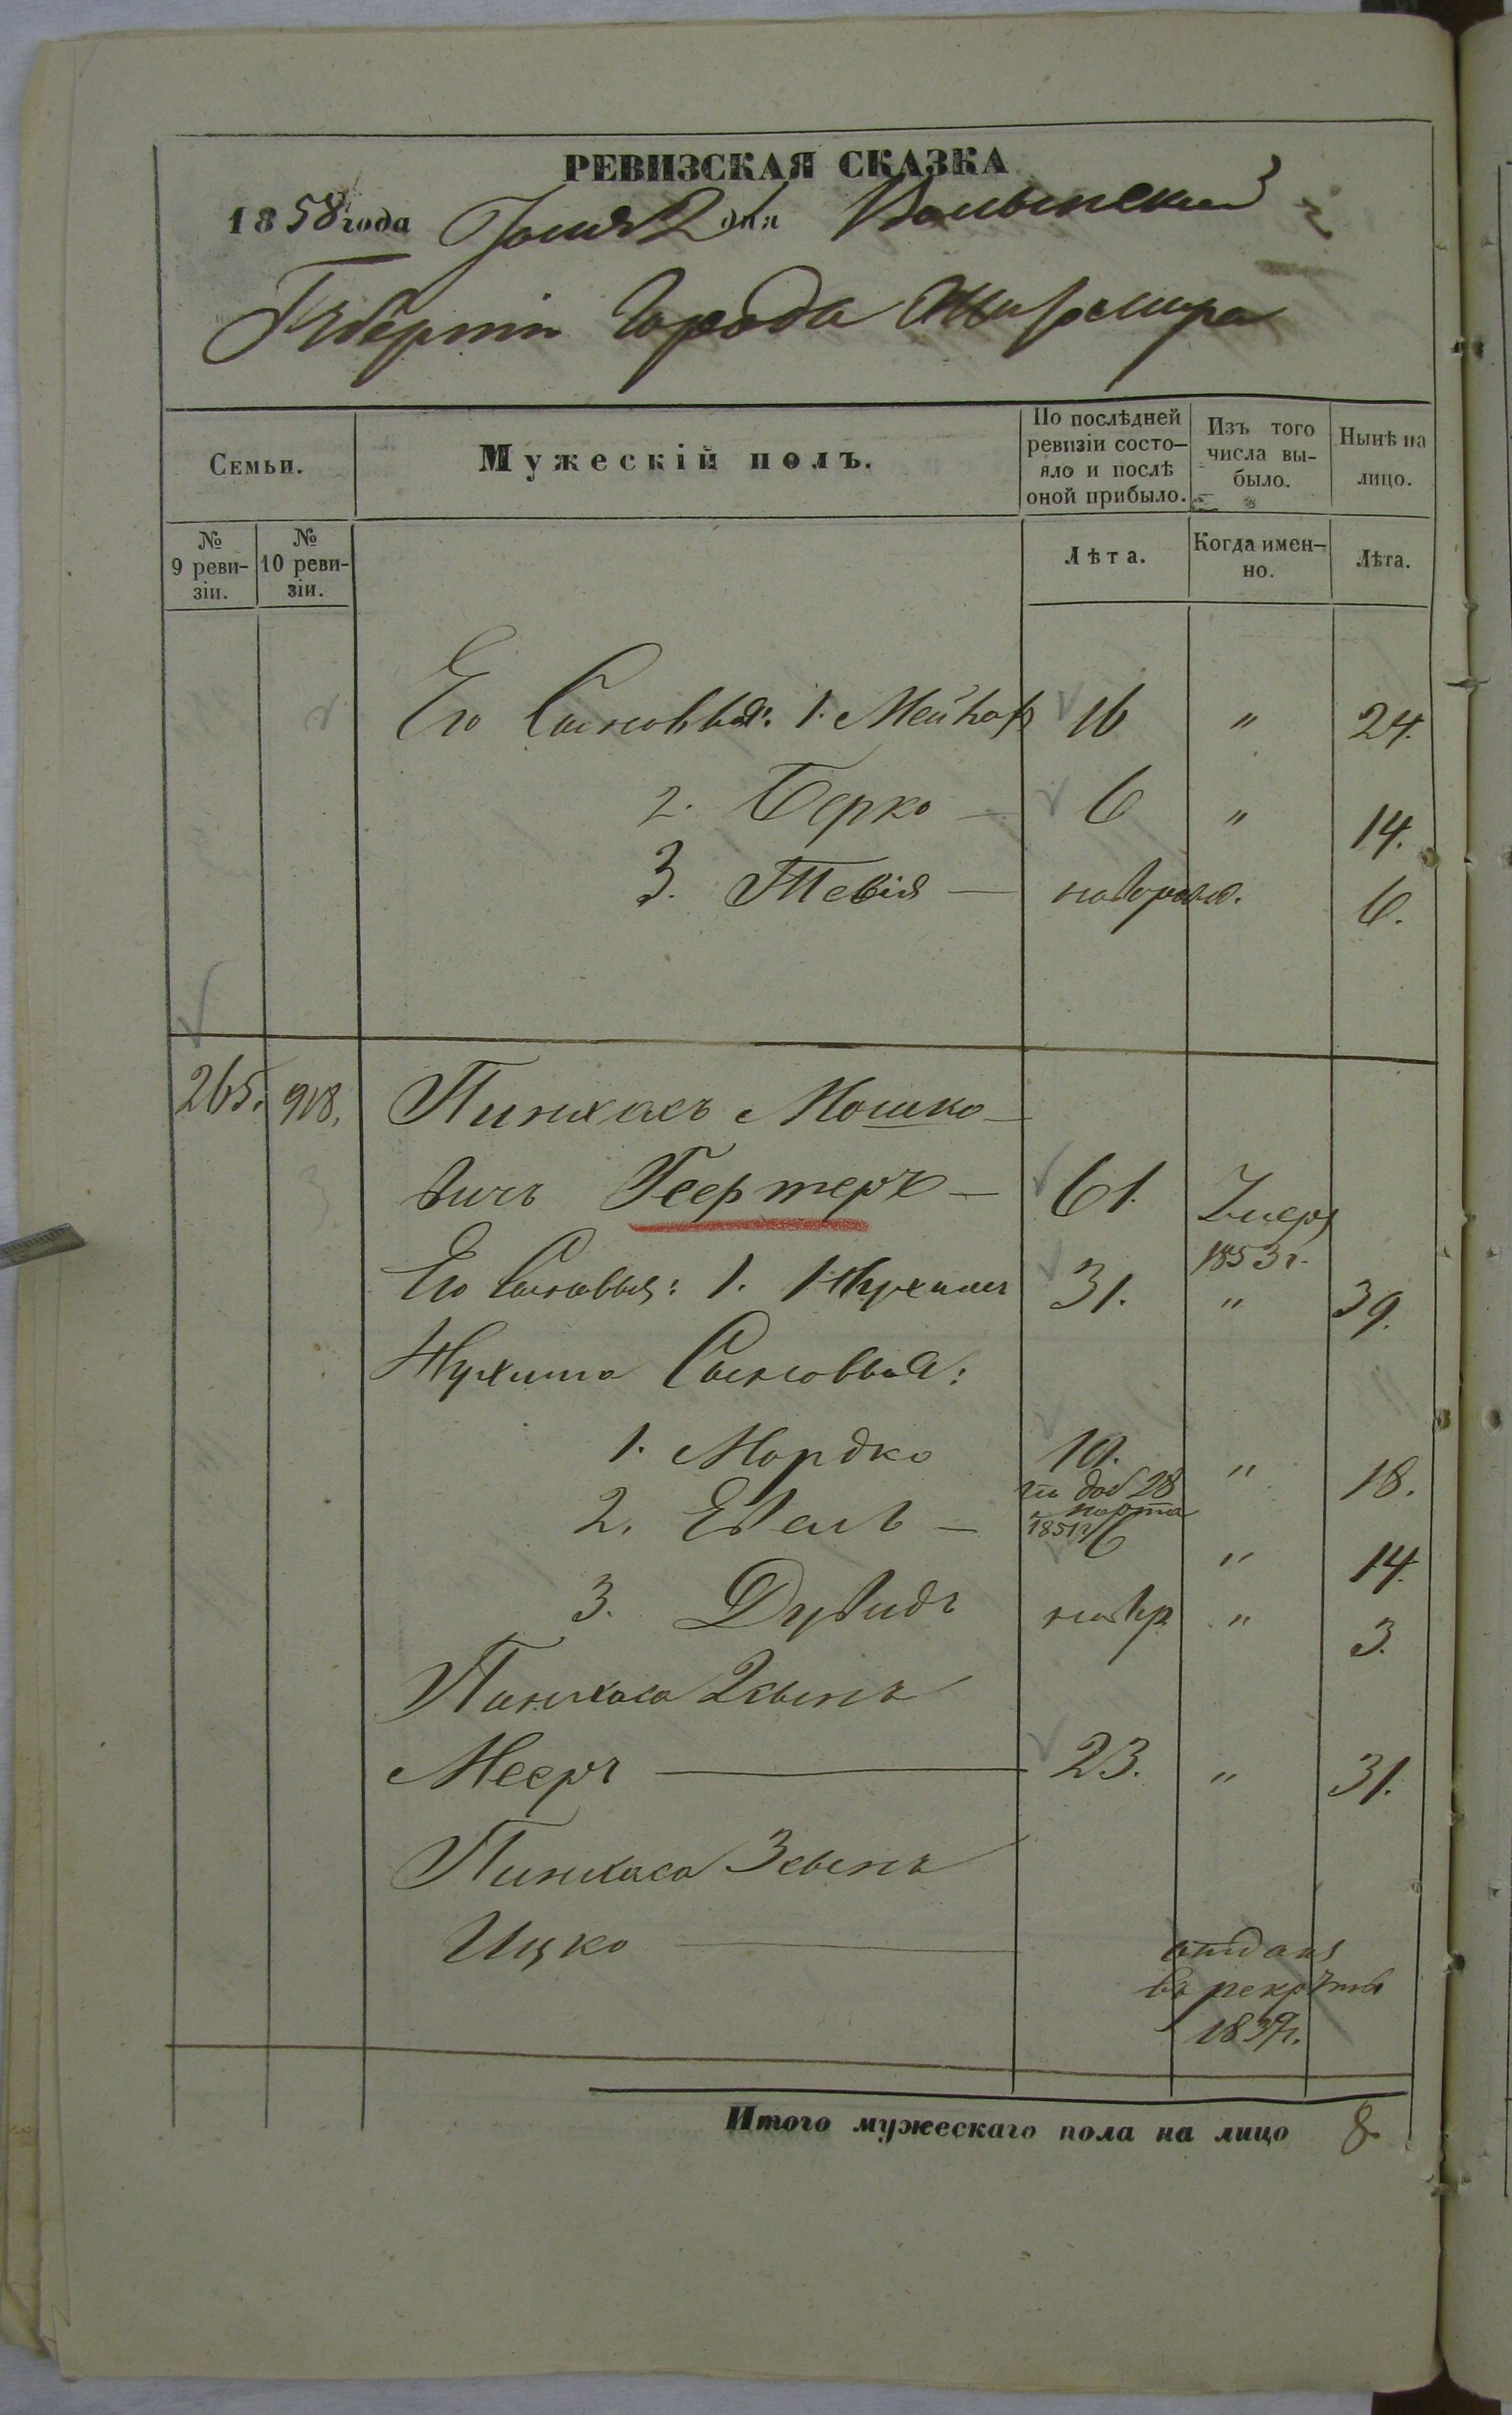 РЕВИЗСКАЯ СКАЗКА
1858 года Іюня 2 дня Волынской
Губерніи Города Житомира
Семьи.
Мужескій полъ.
По послѣдней
ревизіи состо-
яло и послѣ
оной прибыло.
Изъ того
числа вы-
было.
Нынѣ на
лицо.
№
9 реви-
зіи.
№
10 реви-
зіи.
Лѣта.
Когда имен-
но.
Лѣта.
Его Сыновья: 1. 16 " 24.
2. Берко — 6 " 14.
3. Тевія — новорожд. 6.
265. 918. Пинхасъ Мошко-
вичъ — 61. Умеръ
1853 г.
Его Сыновья: 1. Нухимъ 31. " 39.
Нухима Сыновья:
1. Мордко 10. " 18.
по доб 28
марта
1851 г
2. — 6 " 14.
3. Дувидъ новр. " 3.
Пинхаса 2 сынъ
Мееръ — 23. " 31.
Пинхаса 3 сынъ
Ицко — отданъ
въ рекруты
Итого мужескаго пола на лицо 8